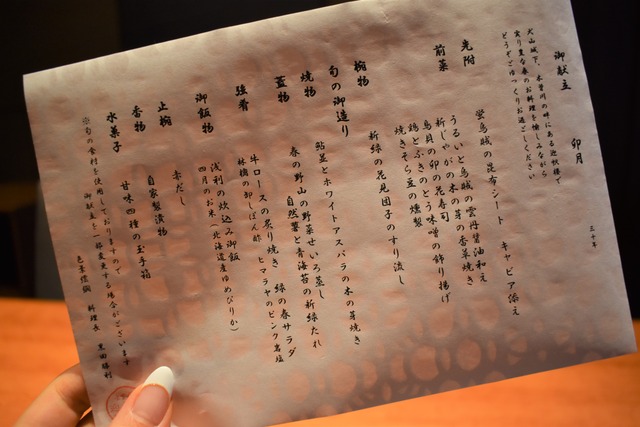 御献立　卯月
犬山城下、木曽川の畔にある迎帆楼で
実り豊な春のお料理を愉しみながら
どうぞごゆっくりお過ごしください
三十年
先附
蛍烏賊の昆布シート　キャビア添え
前菜
うるいと烏賊の雲丹醤油和え
新じゃがの木の芽の香草焼き
烏貝の卯の花寿司
鶏とふきのとう味噌の飾り揚げ
焼きそら豆の燻製
椀物
新緑の花見団子のすり流し
旬の御造り
焼物
鮎並とホワイトアスパラの木の芽焼き
蓋物
春の野山の野菜せいろ蒸し
自然薯と青海苔の新緑たれ
強肴
牛ロースの炙り焼き　緑の春サラダ
林檎の卸しぽん酢　ヒマラヤのピンク岩塩
御飯物
浅利の炊込み御飯
四月のお米（北海道産ゆめぴりか）
止椀
赤だし
香物
自家製漬物
水菓子
甘味四種の玉手箱
※旬の食材を使用しておりますので
御献立を一部変更する場合がございます
料理長　黒田勝利